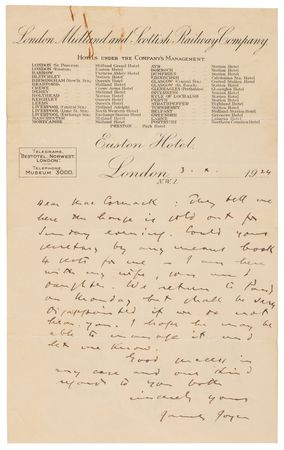 London Midland and Scottish Railway Company
HOTELS UNDER THE COMPANY'S MANAGEMENT
LONDON (St. Pancras) Midland Grand Hotel
LONDON (Euston) Euston Hotel
BARROW Furness Abbey Hotel
BLETCHLEY Station Hotel
BIRMINGHAM (New St. Stn.) Queen's Hotel
BRADFORD Midland Hotel
CREWE Crewe Arms Hotel
DERBY Midland Hotel
HOLYHEAD Station Hotel
KEIGHLEY Queen's Hotel
LEEDS Queen's Hotel
LIVERPOOL Midland Adelphi
LIVERPOOL (Exchange Stn.)
MANCHESTER Midland Hotel
MORECAMBE Midland Hotel
AYR Station Hotel
DORNOCH Station Hotel
DUMFRIES Station Hotel
EDINBURGH Caledonian Stn. Hotel
GLASGOW (Central Stn.) Central Station Hotel
GLASGOW (St. Enoch) St. Enoch Hotel
GLENEAGLES (Perthshire) Gleneagles Hotel
INVERNESS Station Hotel
KYLE OF LOCHALSH Station Hotel
PERTH Station Hotel
STRATHPEFFER Highland Hotel
TURNBERRY Station Hotel
BELFAST Midland Station Hotel
PORTRUSH Northern Counties Hotel
PRESTON Park Hotel
TELEGRAMS,
BESTOTEL, NORWEST,
LONDON.
TELEPHONE
MUSEUM 3000.
Euston Hotel
London 3. x. 1924
N.W.1.
Dear MacCormack: They tell me
here the house is sold out for
Sunday evening. Could your
secretary by any means book
4 seats for me as I am here
with my wife, son and
daughter. We return to Paris
on Monday but shall be very
disappointed if we do not
hear you. I hope he may be
able to manage it and
let me know.
Good success in
any case and our kind
regards to you both
sincerely yours
James Joyce